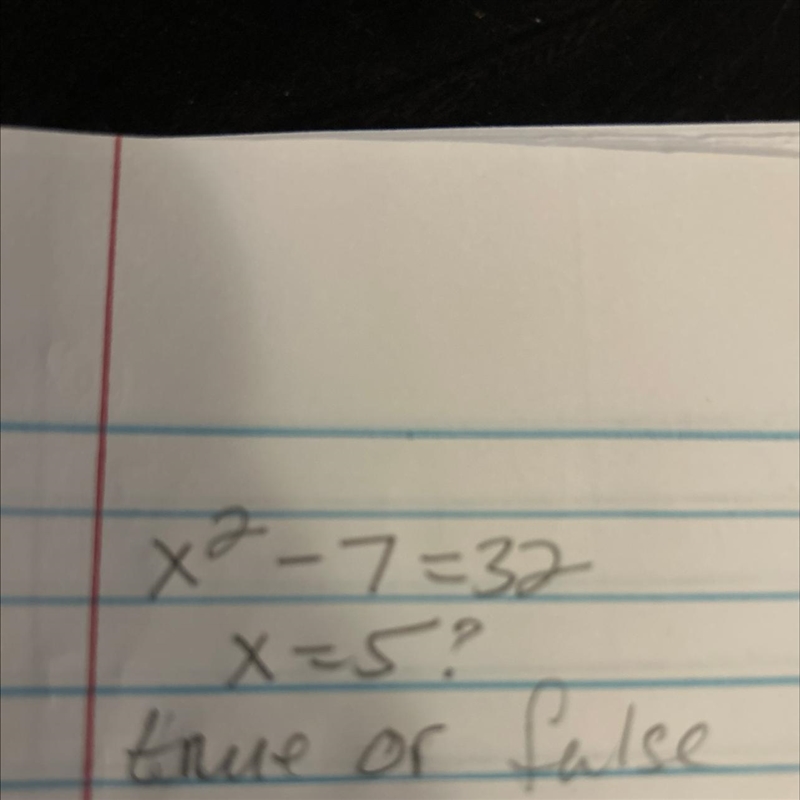 x² - 7 = 32
x = 5?
true or false